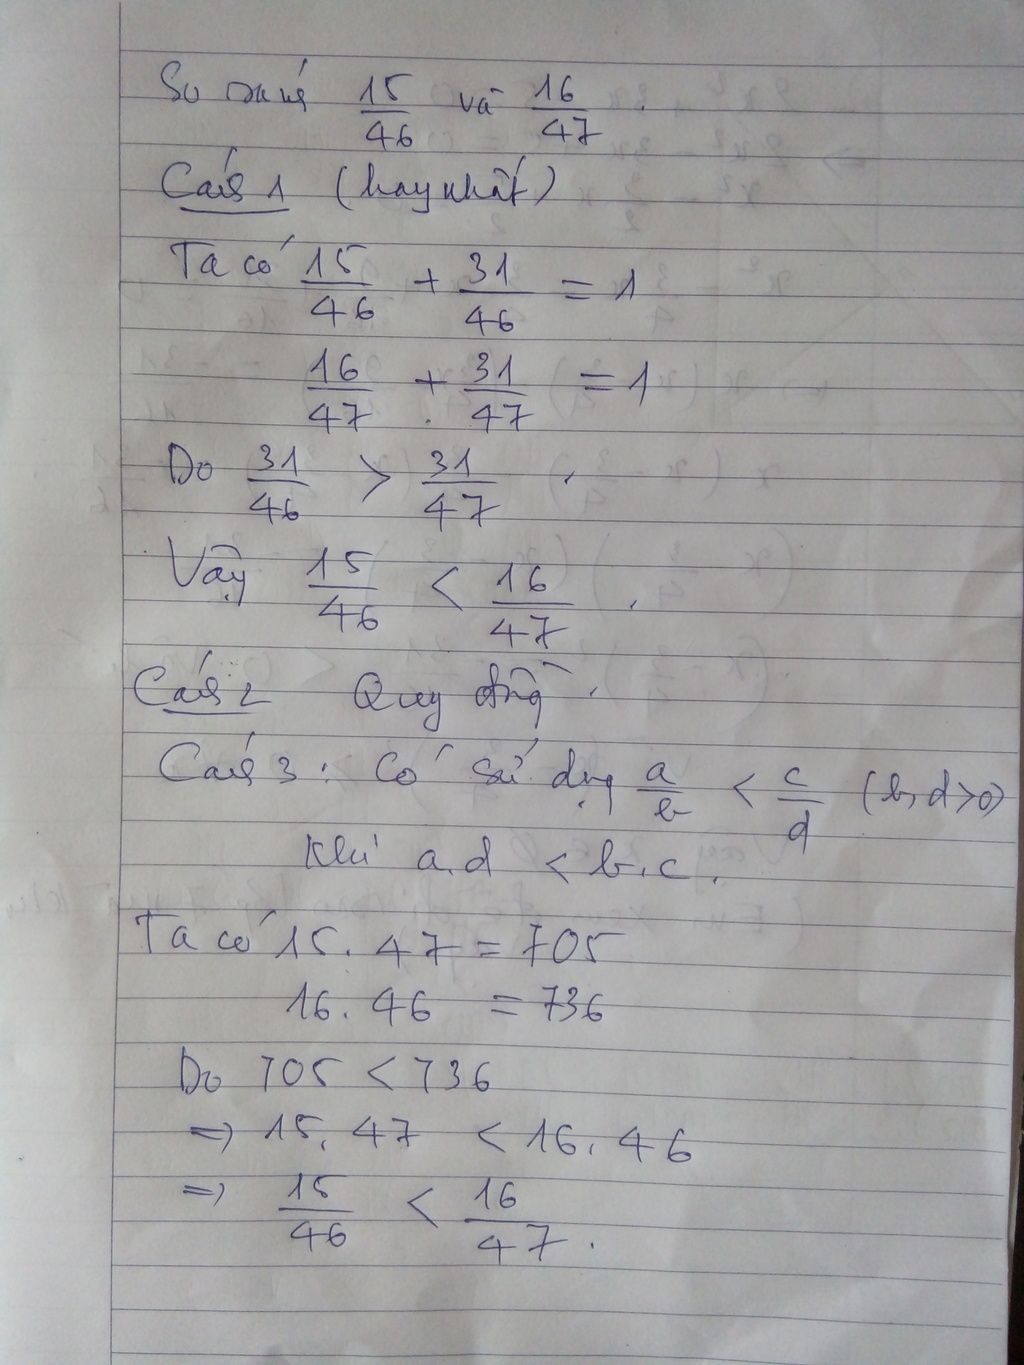 So sánh 15/46 và 16/47.
Cách 1 (hay nhất)
Ta có 15/46 + 31/46 = 1
16/47 + 31/47 = 1
Do 31/46 > 31/47.
Vậy 15/46 < 16/47.
Cách 2 Quy đồng.
Cách 3: Có sử dụng a/b < c/d (b, d>0)
Khi a.d < b.c.
Ta có 15.47 = 705
16.46 = 736
Do 705 < 736
=> 15.47 < 16.46
=> 15/46 < 16/47.